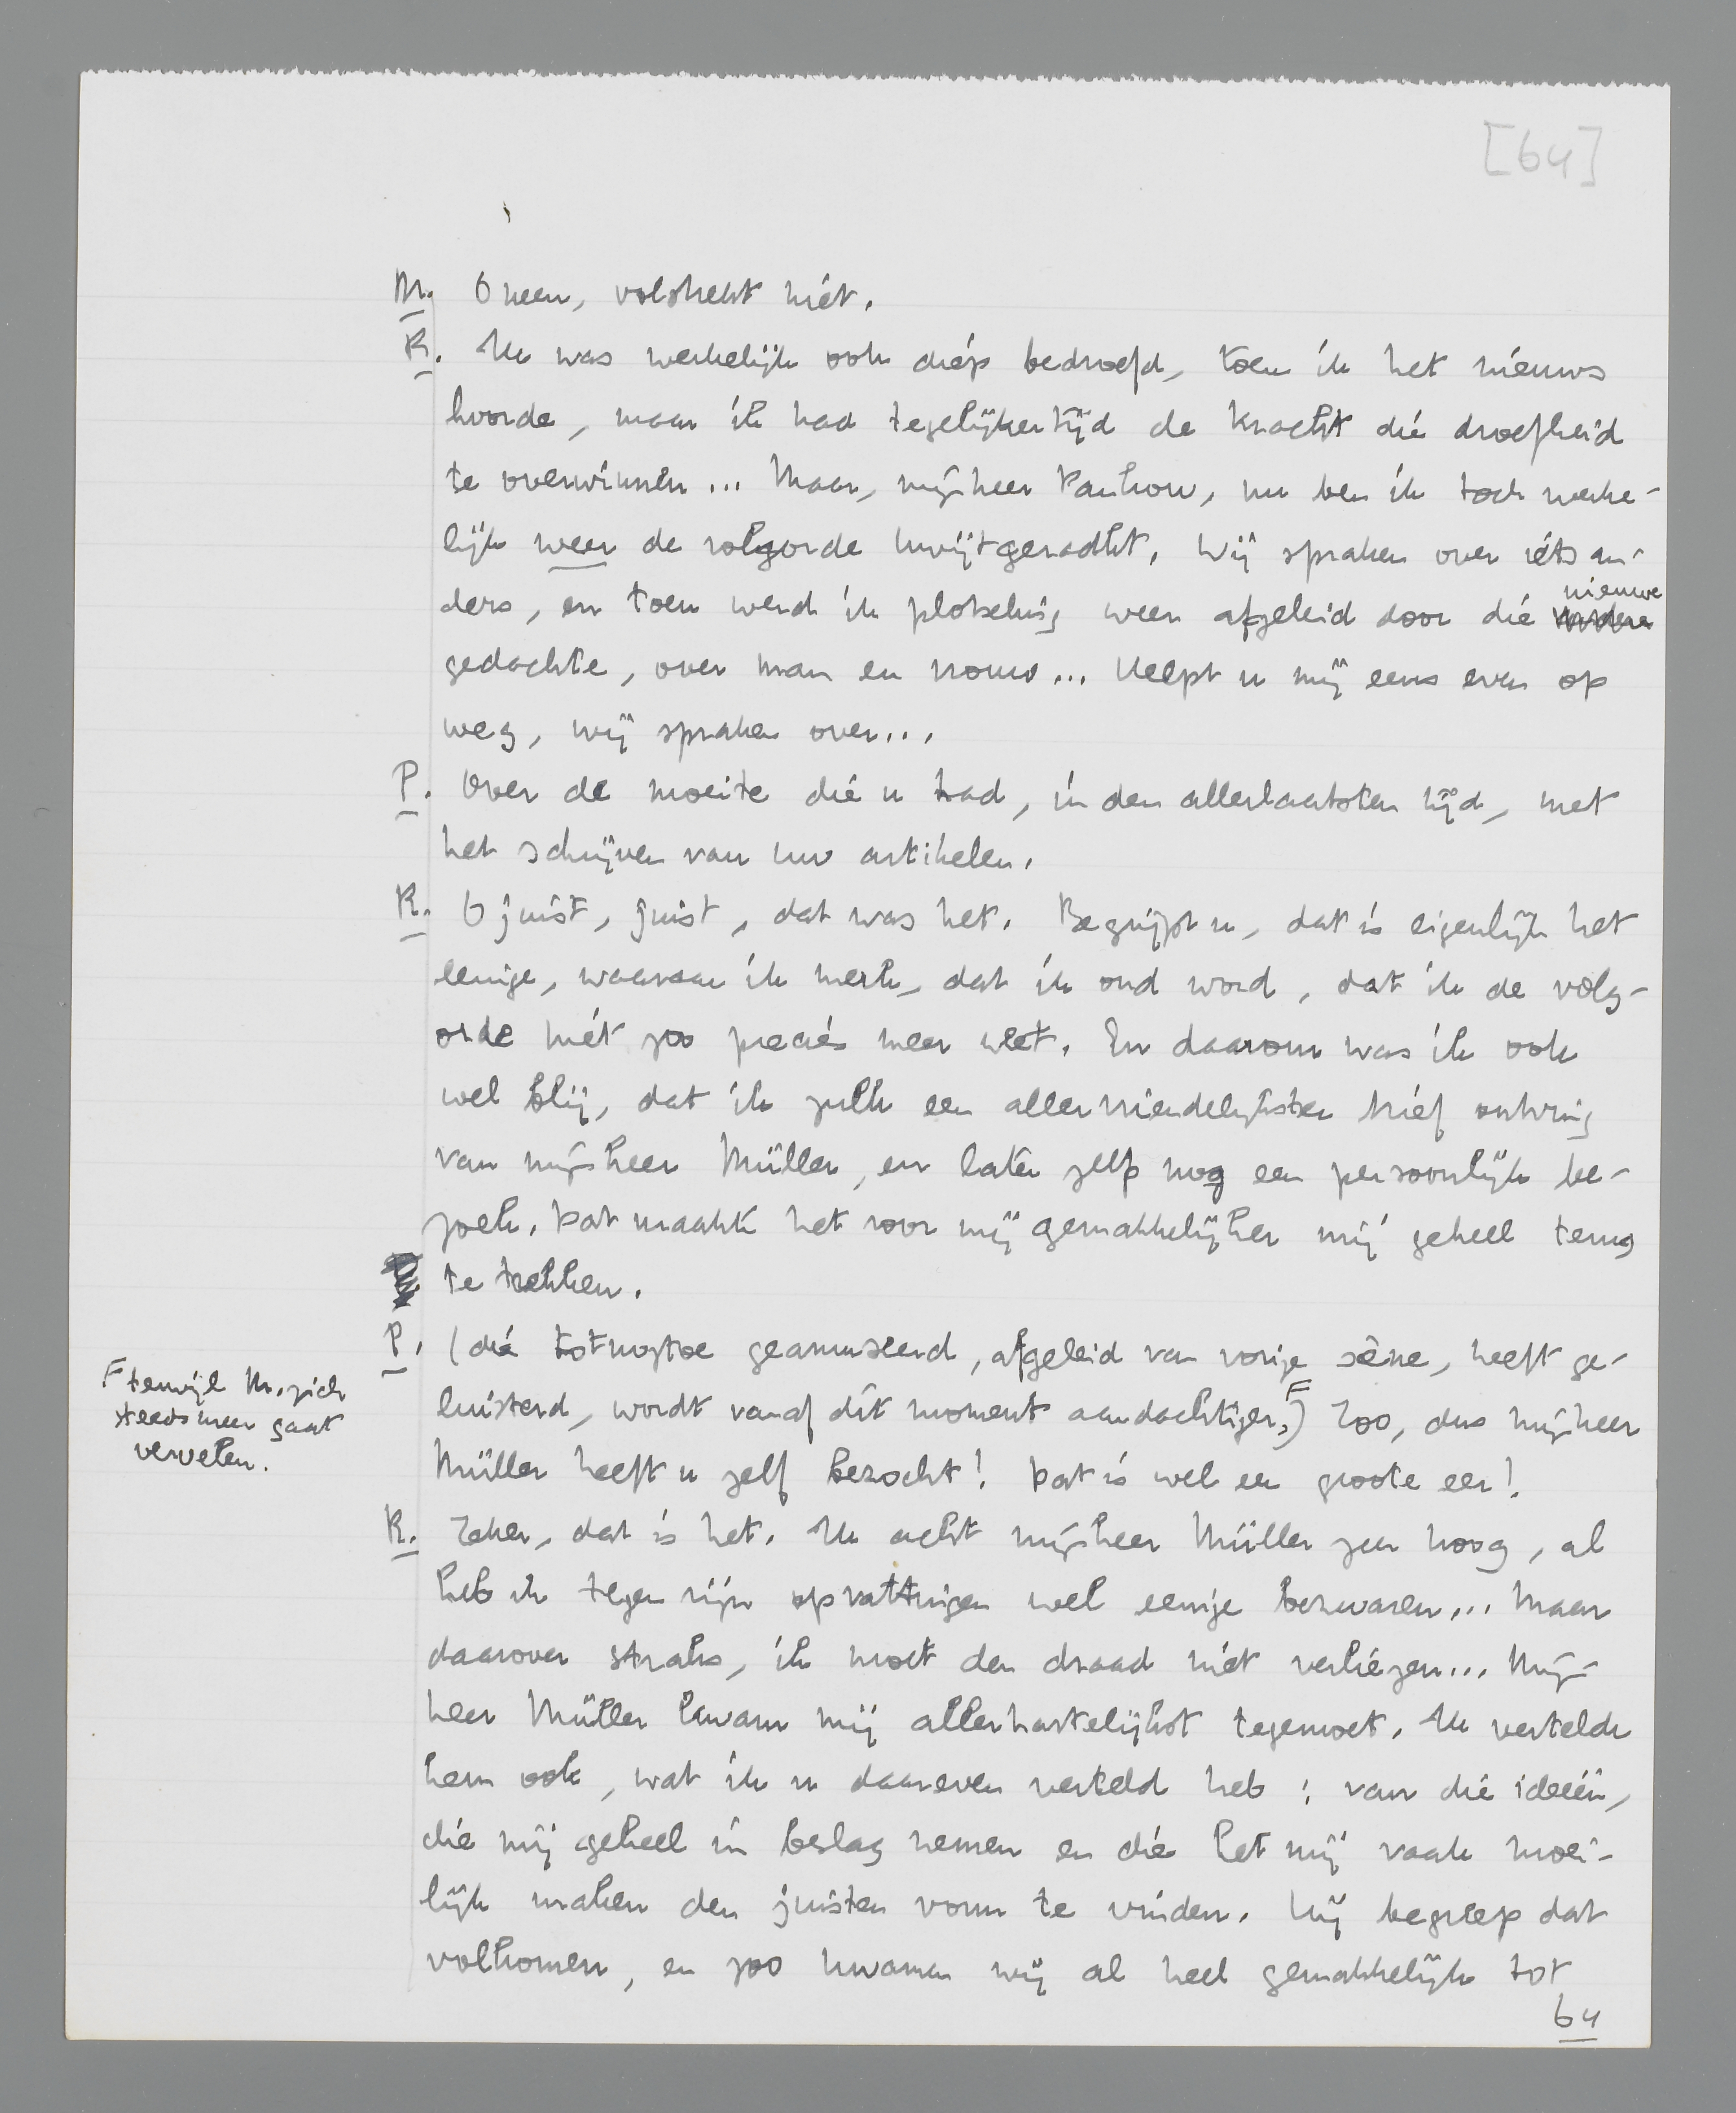 [64]
M. O neen, volstrekt niet.
K. Ik was werkelijk ook diep bedroefd, toen ik het nieuws
hoorde, maar ik had tegelijkertijd de kracht die droefheid
te overwinnen... Maar, mijnheer Pantrow, nu ben ik toch werke-
lijk weer de volgorde kwijtgeraakt. Wij spraken over iets an-
ders, en toen werd ik plotseling weer afgeleid door die nieuwe
gedachte, over man en vrouw... Helpt u mij eens even op
weg, wij spraken over...
P. Over de moeite die u had, in den allerlaatsten tijd, met
het schrijven van uw artikelen.
K. O juist, juist, dat was het. Begrijpt u, dat is eigenlijk het
eenige, waaraan ik merk, dat ik oud word, dat ik de volg-
orde niet zoo precies meer weet. En daarom was ik ook
wel blij, dat ik zulk een allervriendelijksten brief ontving
van mijnheer Müller, en later zelf nog een persoonlijk be-
zoek. Dat maakte het voor mij gemakkelijker mij geheel terug
te trekken.
P. (die totnogtoe geamuseerd, afgeleid van vorige scène, heeft ge-
luisterd, wordt vanaf dit moment aandachtiger,F) Zoo, dus mijnheer
F terwijl M. zich
steeds meer gaat
vervelen.
Müller heeft u zelf bezocht! Dat is wel een groote eer!
K. Zeker, dat is het. Ik acht mijnheer Müller zeer hoog, al
heb ik tegen zijn opvattingen wel eenige bezwaren... Maar
daarover straks, ik moet den draad niet verliezen... Mijn-
heer Müller kwam mij allerhartelijkst tegemoet. Ik vertelde
hem ook, wat ik u daareven verteld heb: van die ideeën,
die mij geheel in beslag nemen en die het mij vaak moei-
lijk maken den juisten vorm te vinden. Hij begreep dat
volkomen, en zoo kwamen wij al heel gemakkelijk tot
64